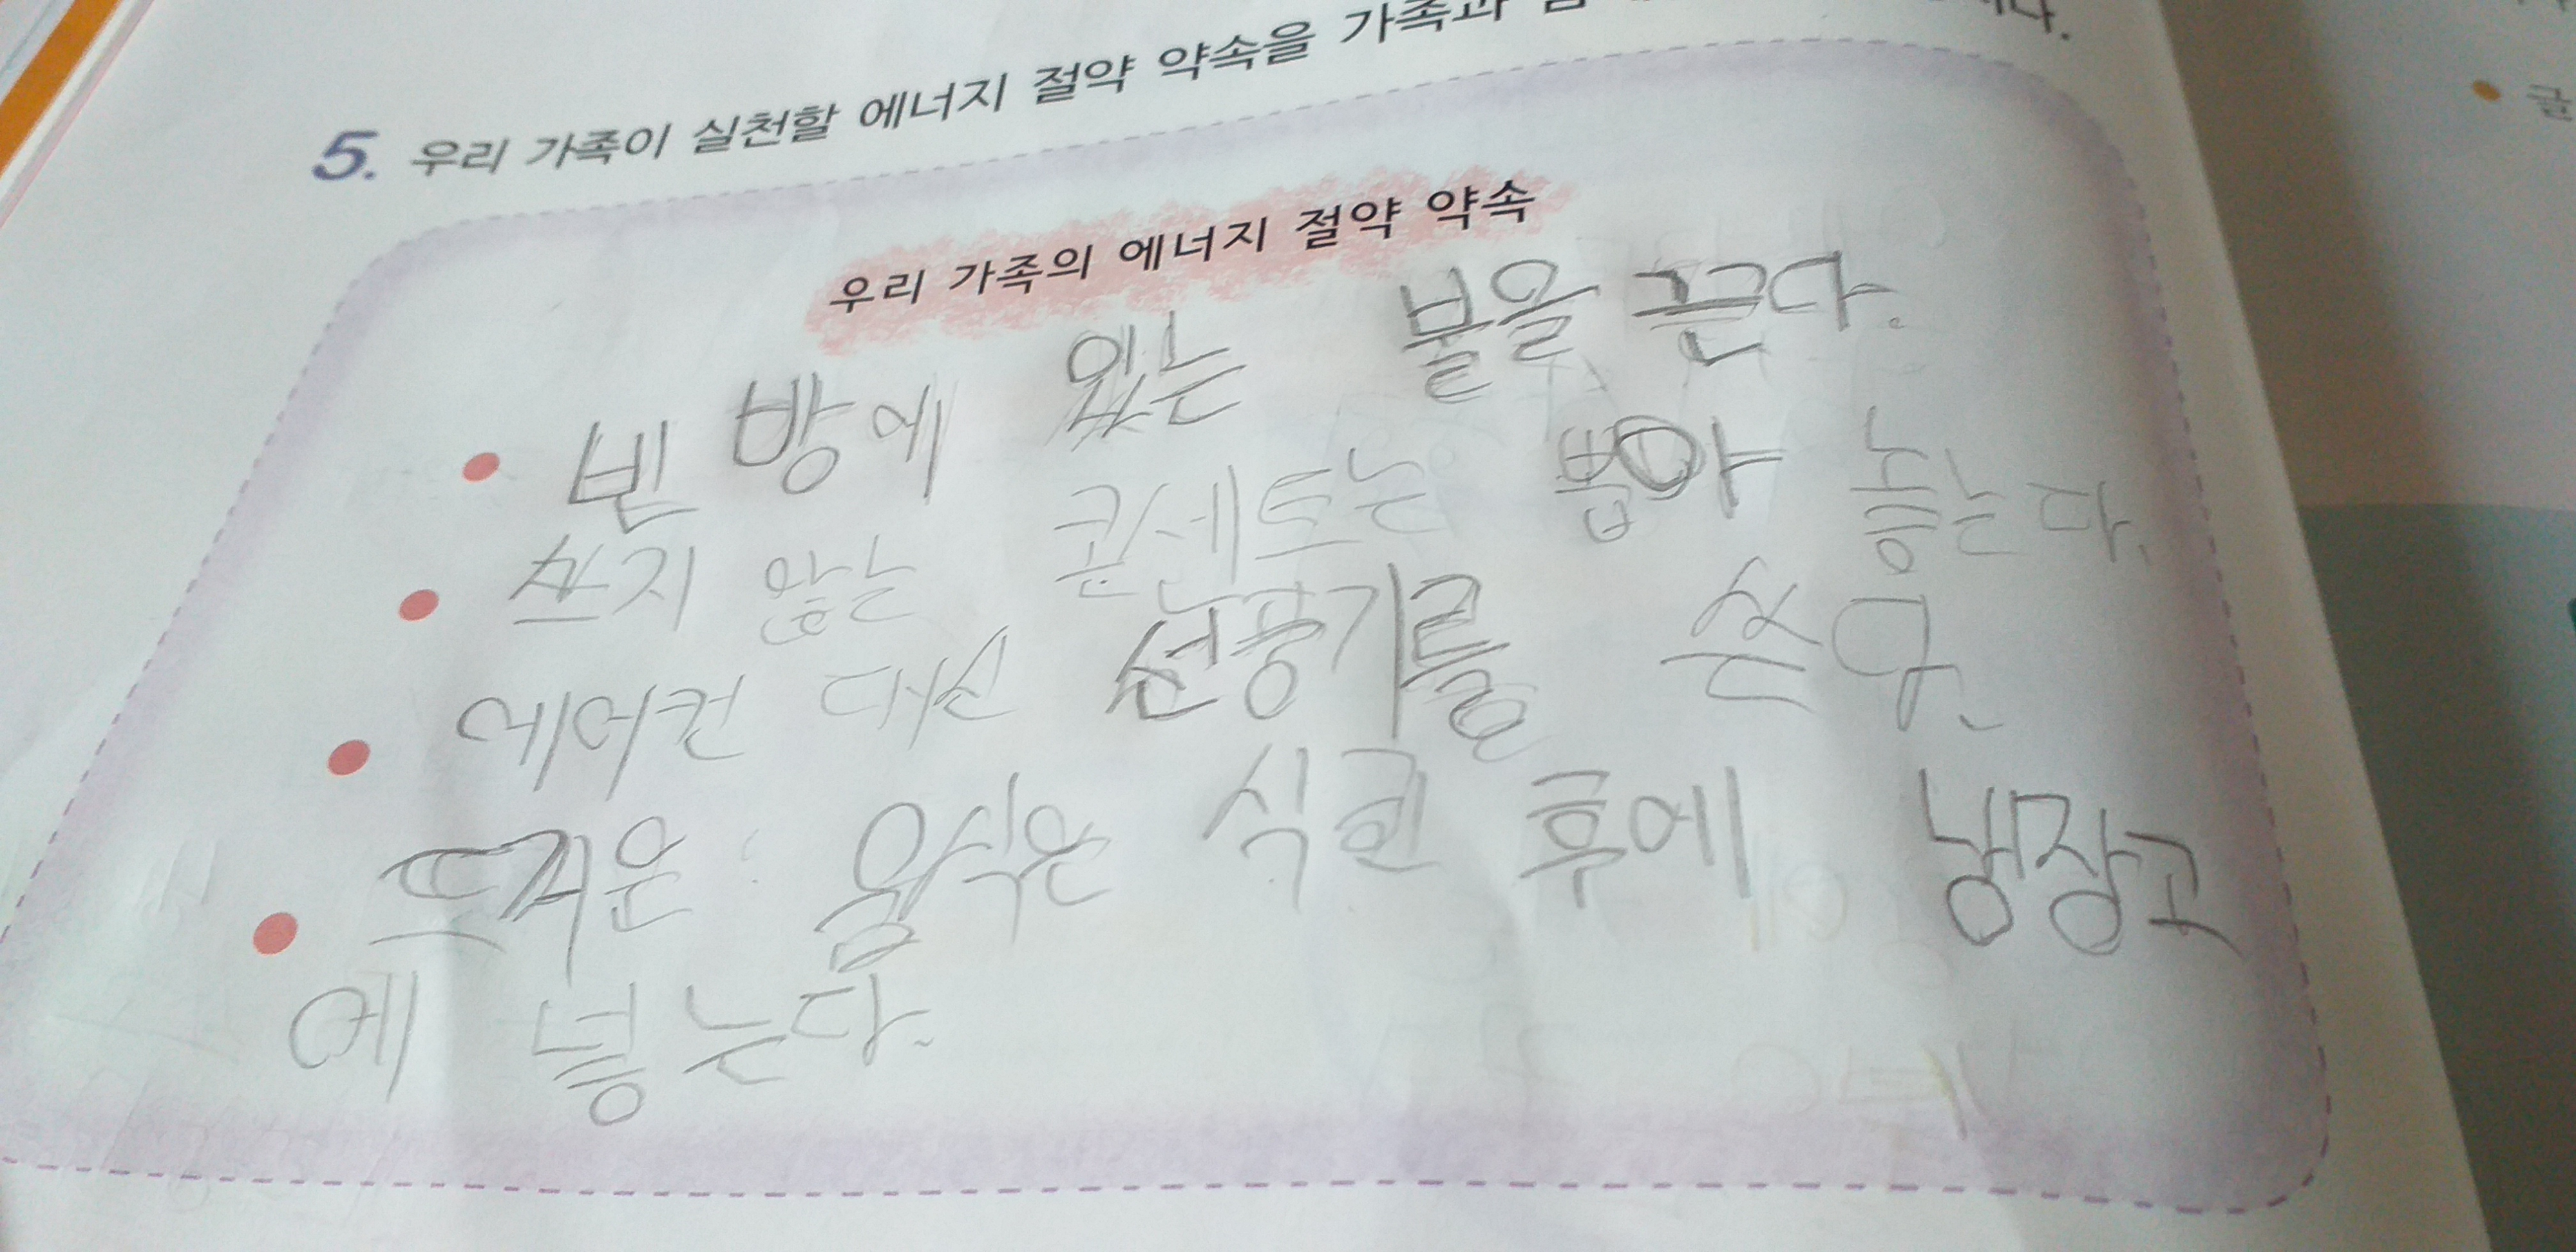 5. 우리 가족이 실천할 에너지 절약 약속을 가족과
우리 가족의 에너지 절약 약속
• 빈 방에 있는 불을 끈다.
• 쓰지 않는 콘센트는 뽑아 놓는다.
• 에어컨 대신 선풍기를 쓴다.
• 뜨거운 음식은 식힌 후에 냉장고
에 넣는다.